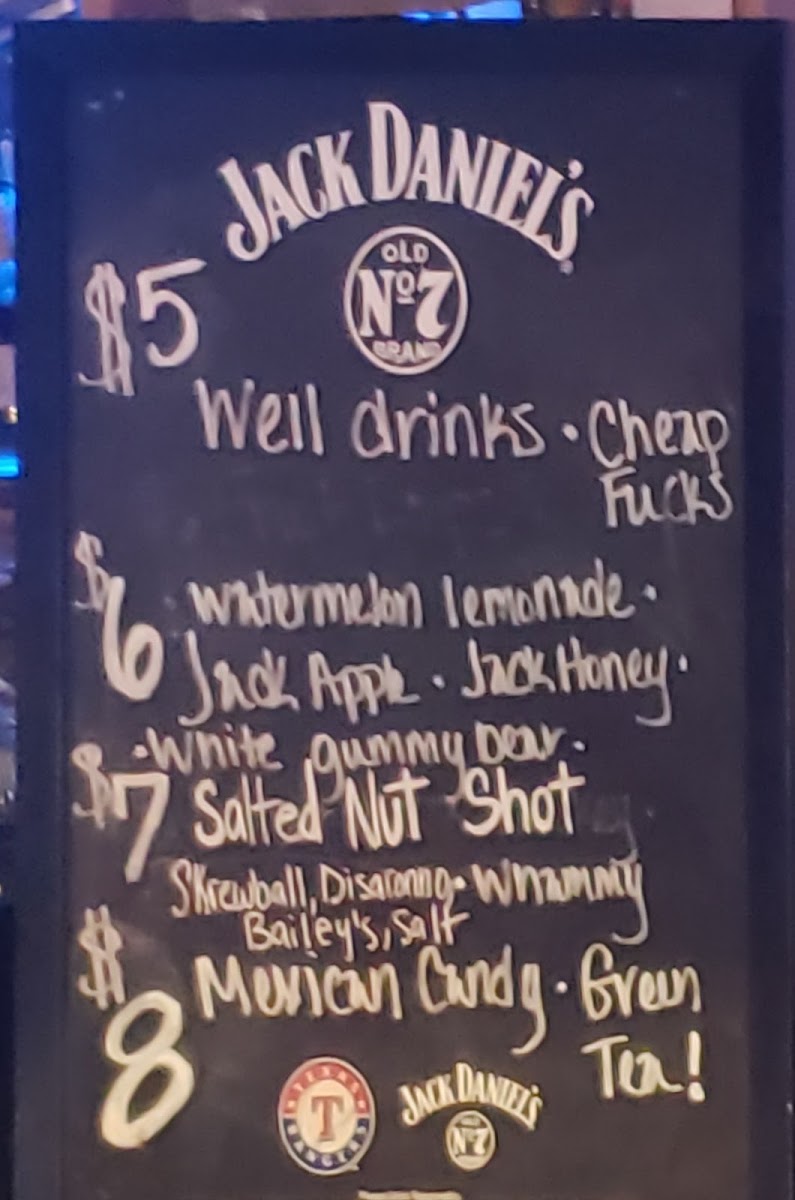 JACK DANIEL'S
OLD
Nº7
BRAND
$5
Well drinks · Cheap
Fucks
$6 · watermelon lemonade ·
Jack Apple · Jack Honey ·
· White gummy bear ·
$7 Salted Nut Shot
Skrewball, Disaronno · Whammy
Bailey's, Salt
$8 Mexican Candy · Green
Tea!
TEXAS
T
RANGERS
JACK DANIEL'S
OLD
Nº7